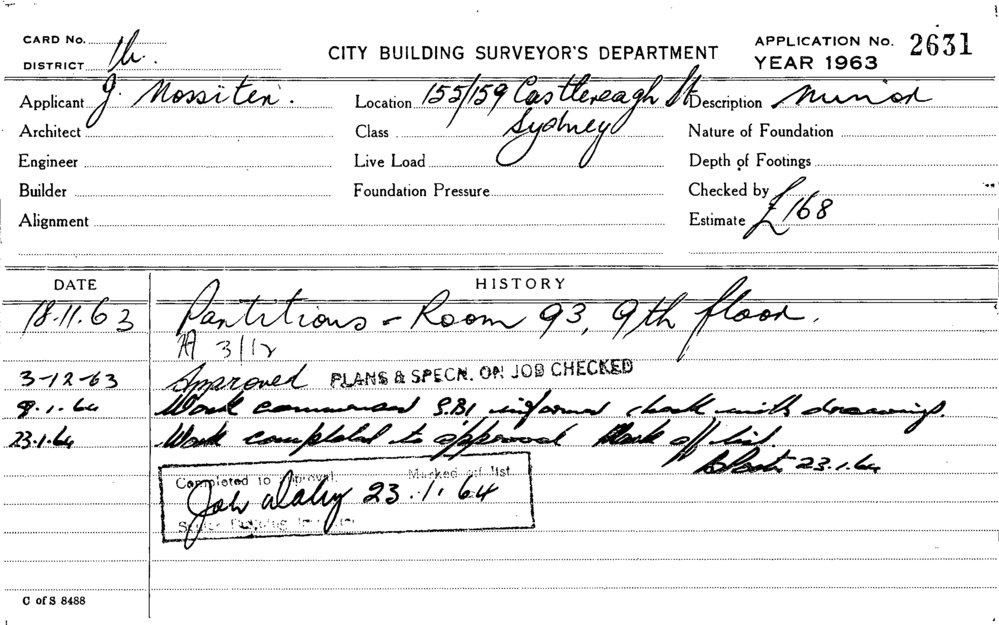 CARD No.
DISTRICT
CITY BUILDING SURVEYOR'S DEPARTMENT
APPLICATION No. 2631
YEAR 1963
Applicant J. Mossiter.
Location 155/159 Castlereagh St
Sydney
Description Minor
Architect
Class
Nature of Foundation
Engineer
Live Load
Depth of Footings
Builder
Foundation Pressure
Checked by
Alignment
Estimate £168
DATE
HISTORY
18.11.63 Partitions - Room 93, 9th floor.
3/12
3-12-63 Approved PLANS & SPECN. ON JOB CHECKED
9.1.64 Work commenced S.B.I. informed check with drawings.
23.1.64 Work completed to approval Mark off list.
23.1.64
Completed to Approval. Marked off list
23.1.64
C of S 8488